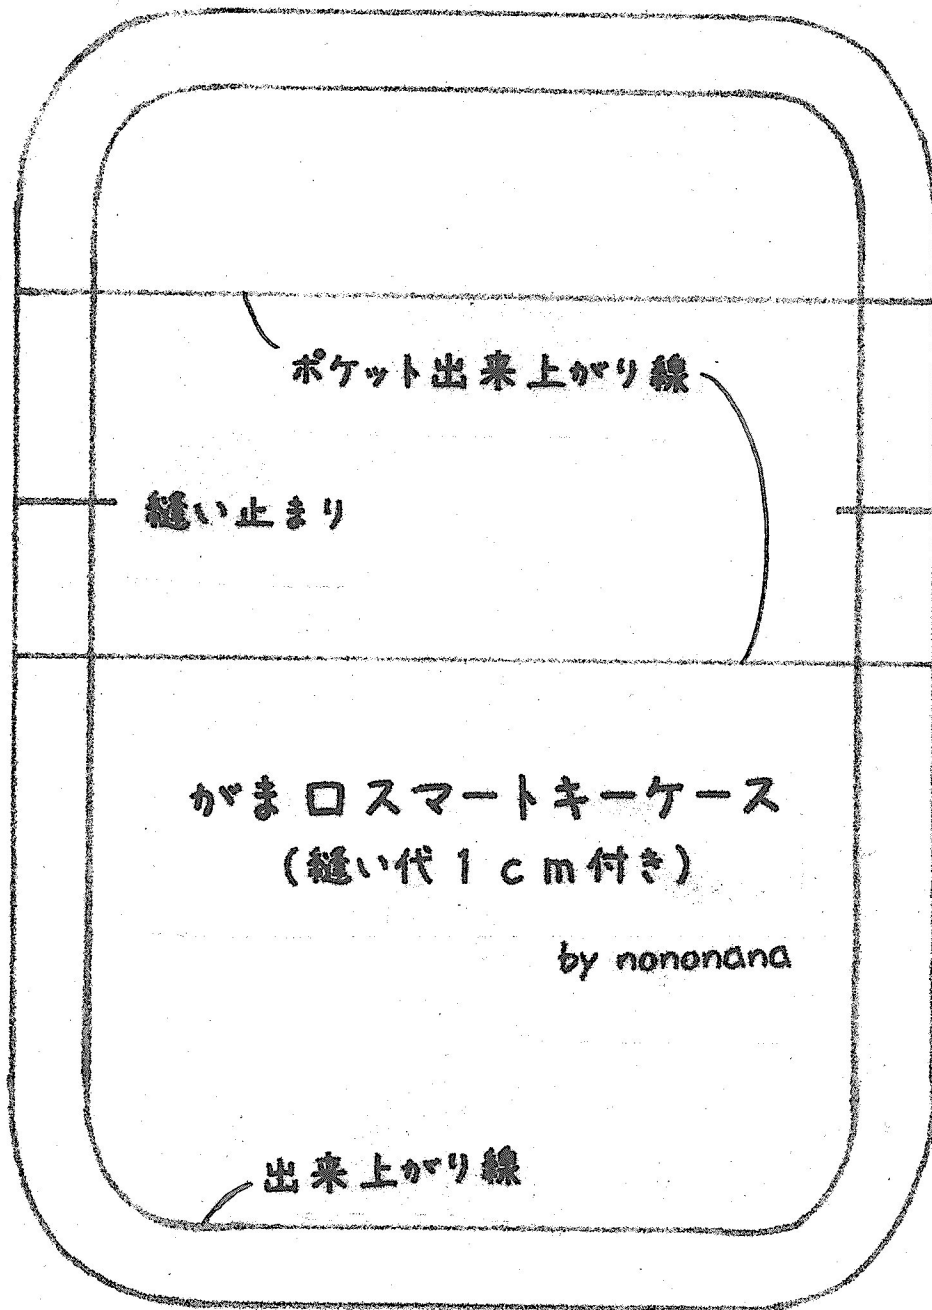 ポケット出来上がり線
縫い止まり
がま口スマートキーケース
(縫い代1cm付き)
by nononana
出来上がり線